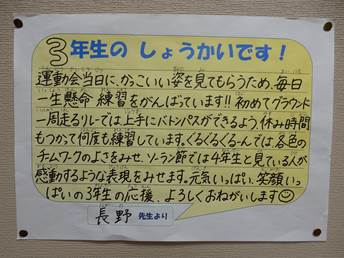 3年生の しょうかいです！
運動会当日に、かっこいい姿を見てもらうため、毎日
一生懸命 練習をがんばっています!! 初めてグラウンド
一周走るリレーでは上手にバトンパスができるよう、休み時間
もつかって何度も練習しています。くるくるぐるーんでは、各色の
チームワークのよさをみせ、ソーラン節では4年生と見ている人が
感動するような表現をみせます。元気いっぱい、笑顔いっ
ぱいの3年生の応援、よろしくおねがいします☺
長野 先生より